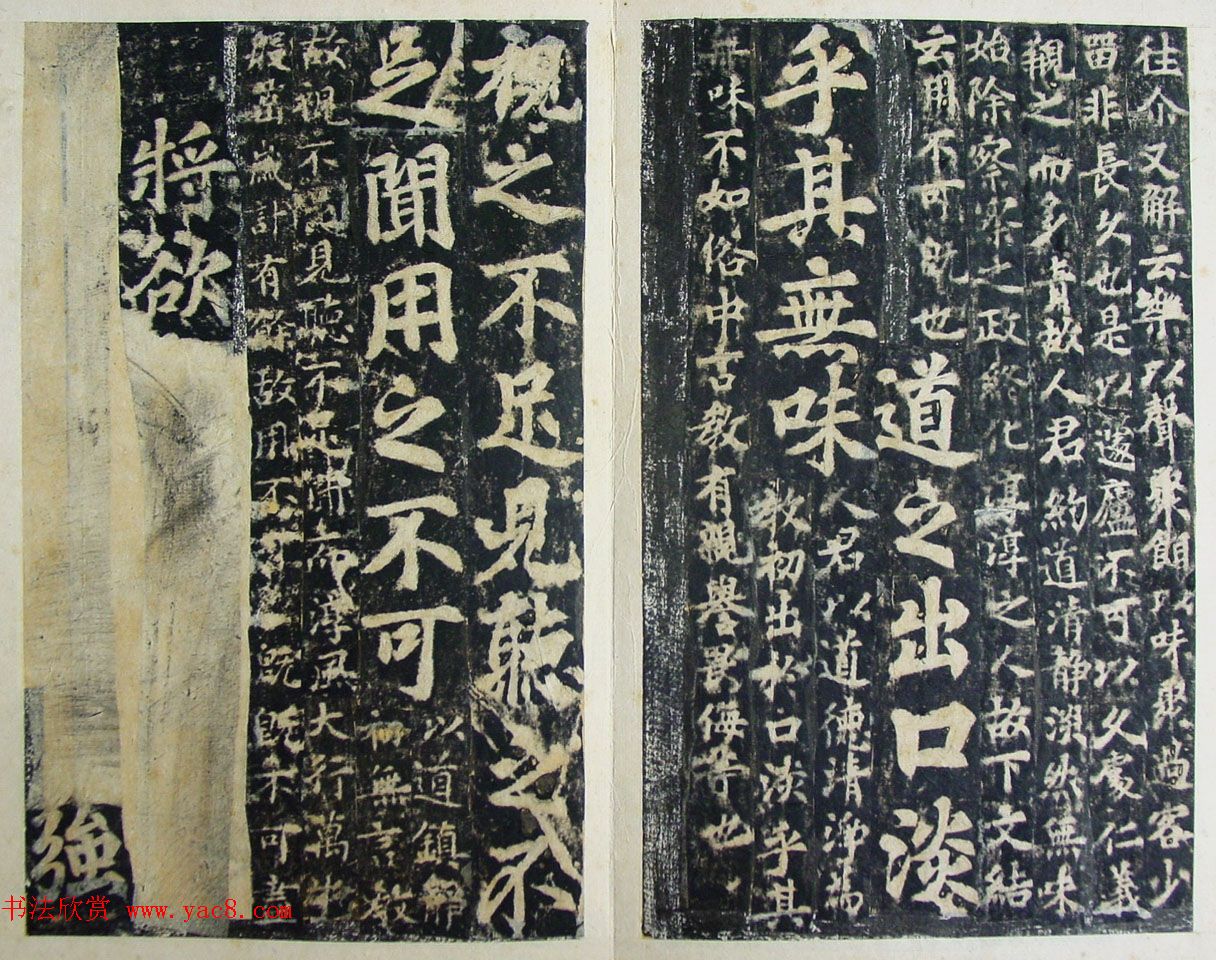 往介又解云樂以聲聚餌以味聚過客少
畱非長久也是以蘧廬不可以久處仁義
覯之而多責故人君約道清靜淵然無味
始除察察之政終化淳淳之人故下文結
云用不可既也
道之出口淡
乎其無味
人君以道德清淨為
教初出於口淡乎其
無味不如俗中言教有親譽畏侮等也
視之不足見聽之不
足聞用之不可
以道鎮
初無言教
故視不足見聽不足聞而淳風大行萬物
殷富歲計有餘故用不可既既未可盡
將欲
強
书法欣赏 www.yac8.com